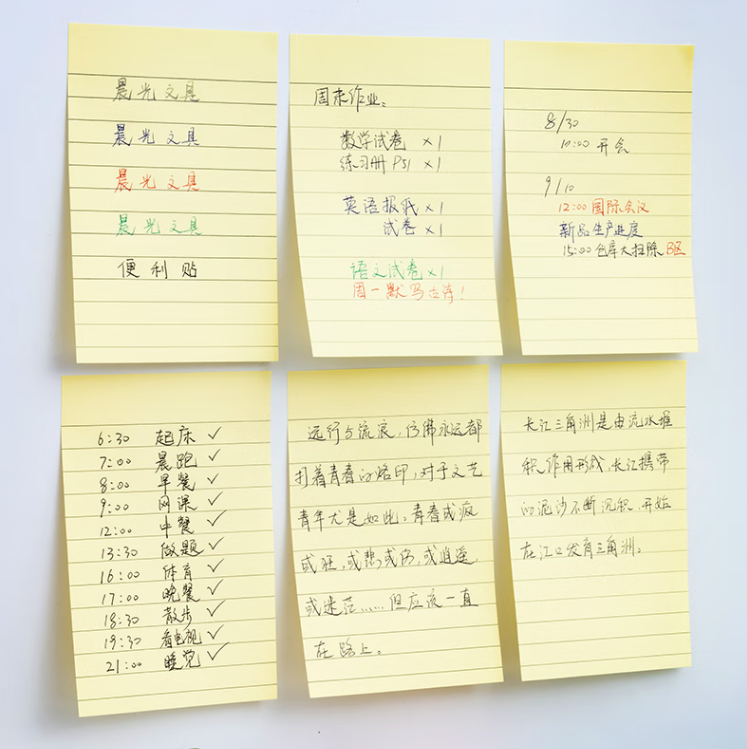 晨光文具
晨光文具
晨光文具
晨光文具
便利贴
周末作业:
数学试卷 ×1
练习册 P51 ×1
英语报纸 ×1
试卷 ×1
语文试卷 ×1
周一默写古诗!
8/30
10:00 开会
9/10
12:00 国际会议
新品生产进度
15:00 仓库大扫除 B区
6:30 起床 ✓
7:00 晨跑 ✓
8:00 早餐 ✓
9:00 网课 ✓
12:00 中餐 ✓
13:30 做题 ✓
16:00 体育 ✓
17:00 晚餐 ✓
18:30 散步 ✓
19:30 看电视 ✓
21:00 睡觉 ✓
远行与流浪,仿佛永远都
打着青春的烙印,对于文艺
青年尤是如此。青春或疯
或狂,或愁或伤,或逍遥,
或迷茫……但应该一直
在路上。
长江三角洲是由流水堆
积作用形成,长江携带
的泥沙不断沉积,开始
在江口发育三角洲。